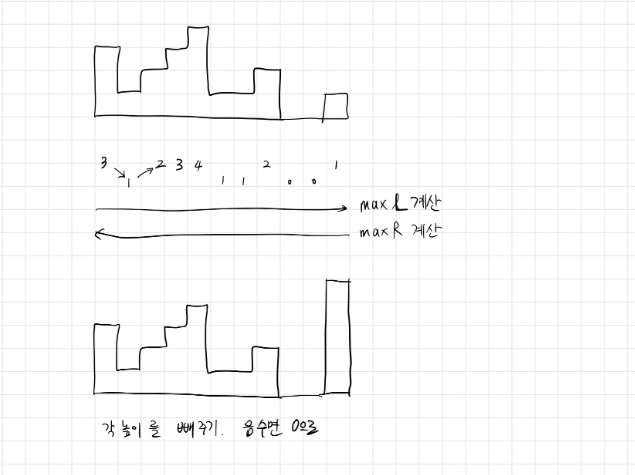 3 1 2 3 4 1 1 2 0 0 1
max L 계산
max R 계산
각 높이를 빼주기. 음수면 0으로